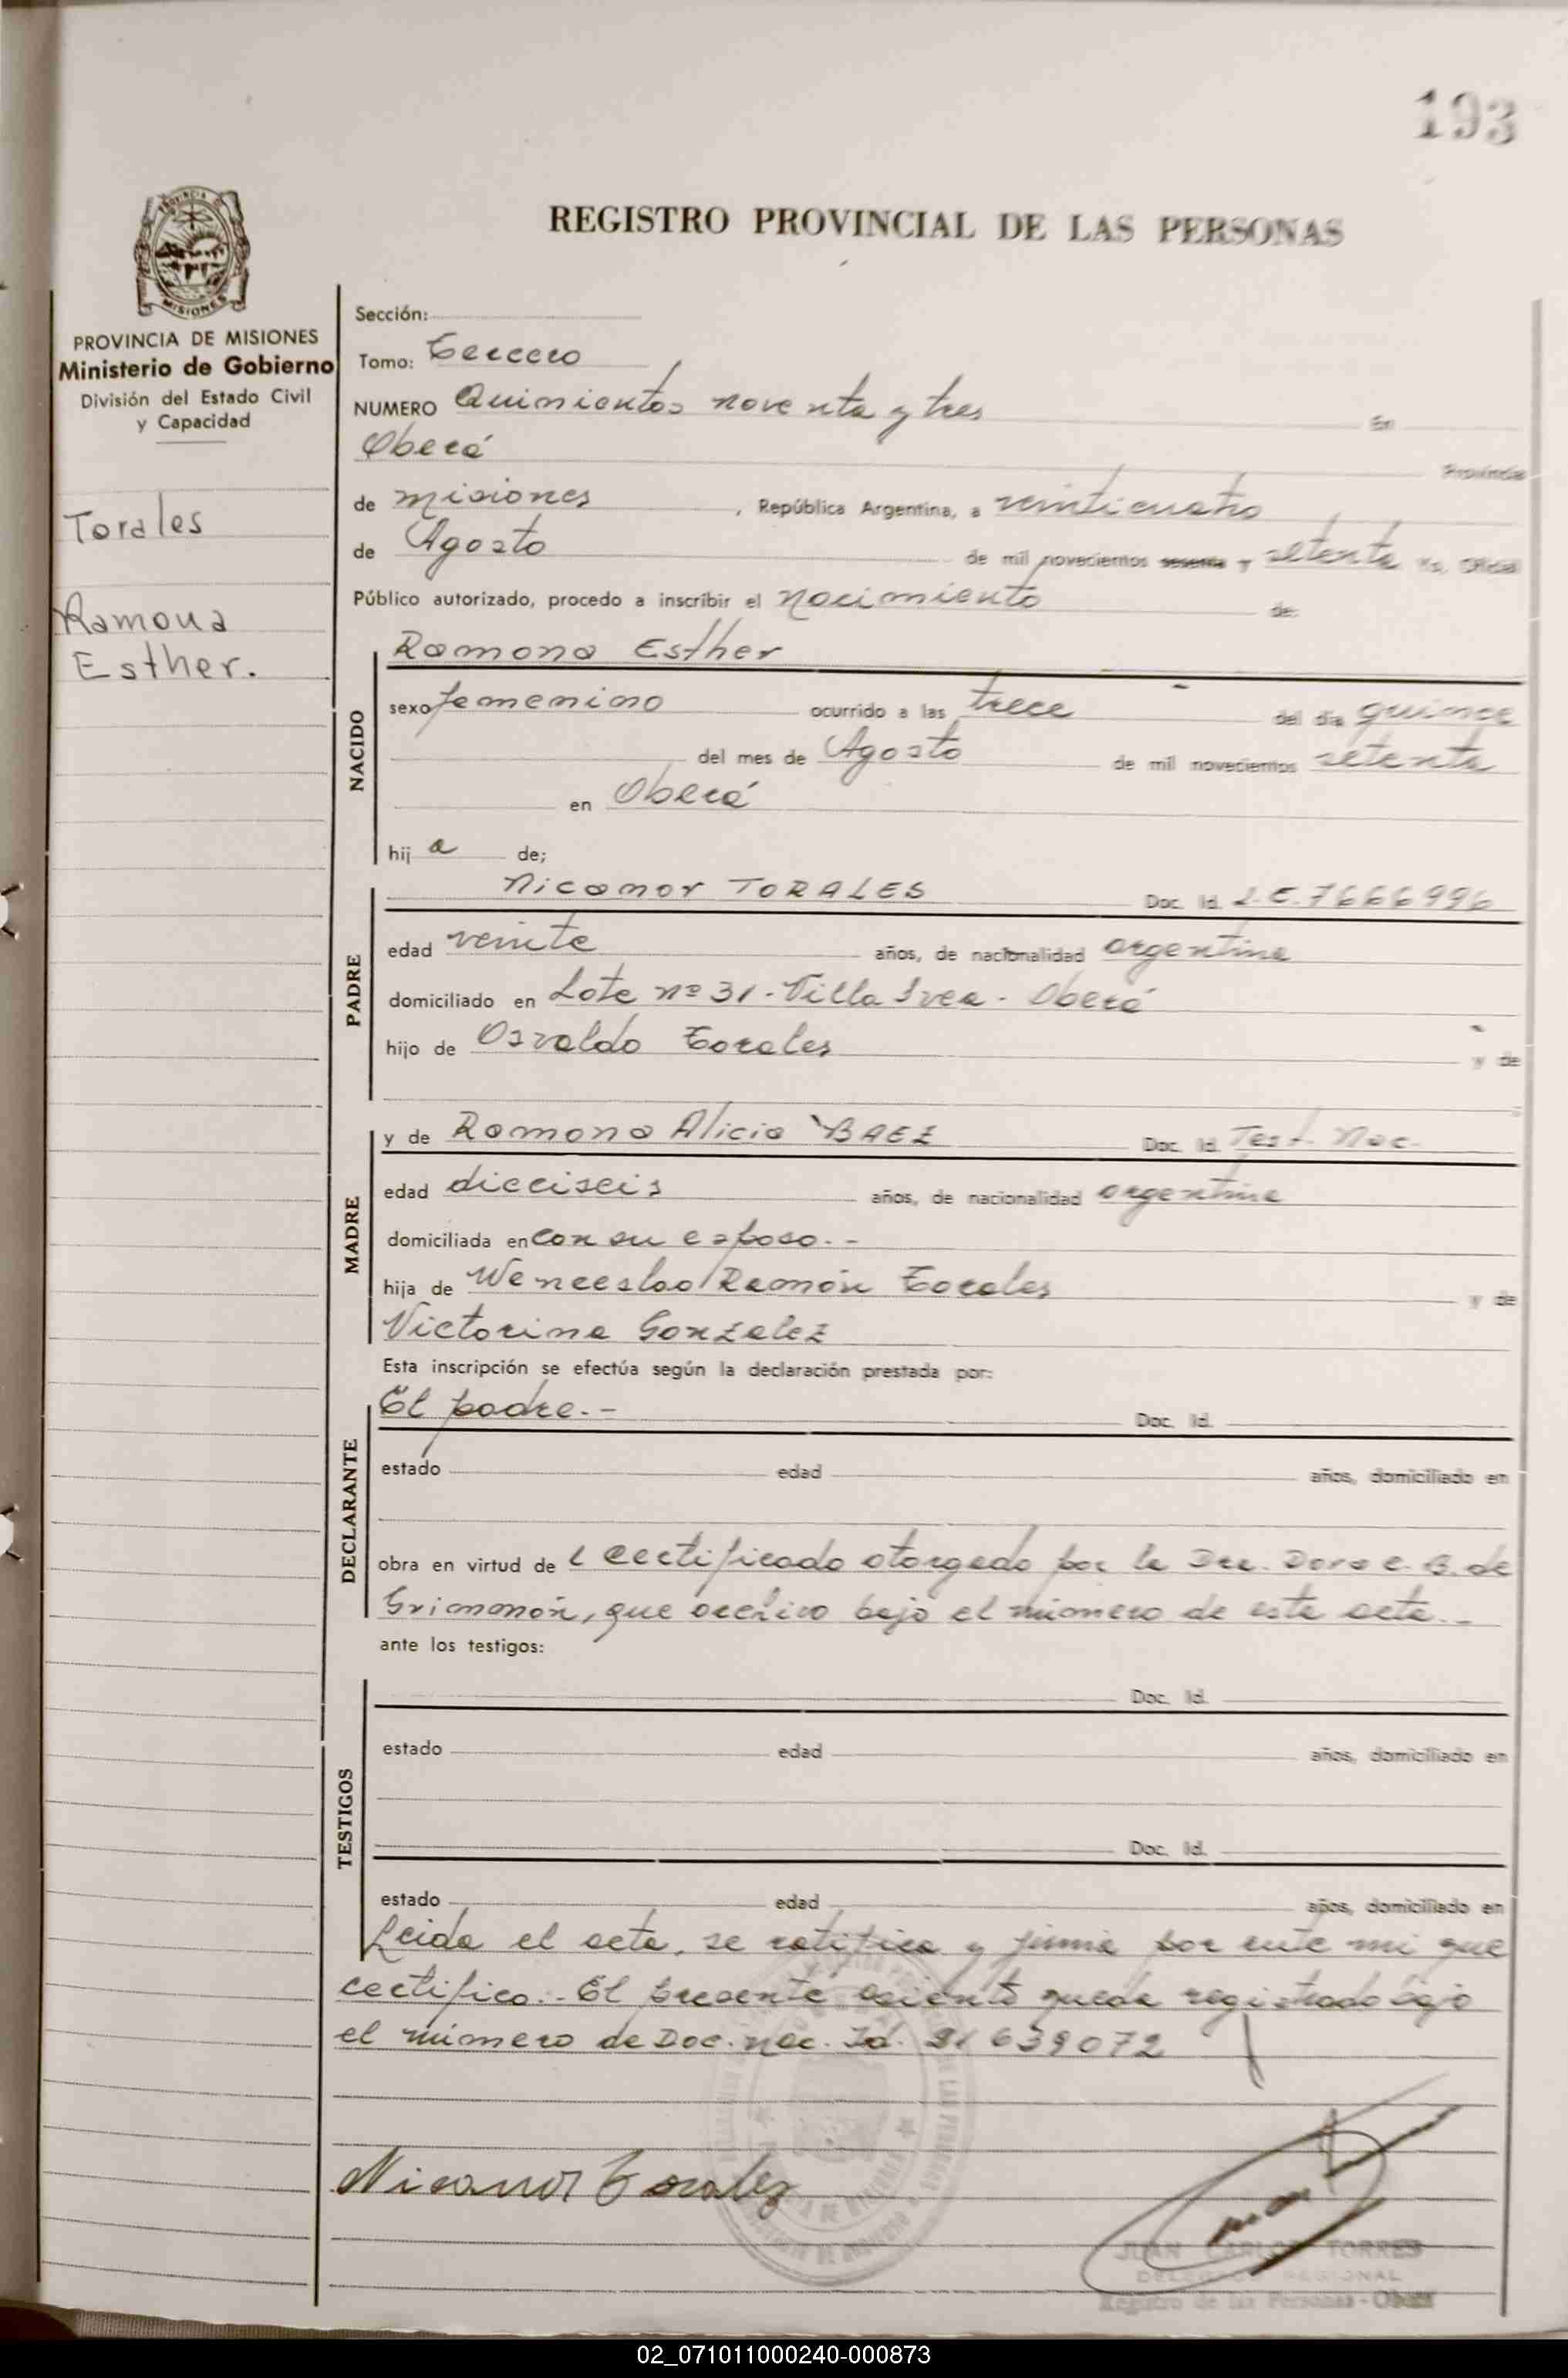 193
REGISTRO PROVINCIAL DE LAS PERSONAS
PROVINCIA DE MISIONES
Ministerio de Gobierno
División del Estado Civil
y Capacidad
Torales
Ramona
Esther.
Sección:
Tomo: Tercero
NUMERO Quinientos noventa y tres En
Oberá Provincia
de misiones , República Argentina, a veinticuatro
de Agosto de mil novecientos sesenta y setenta Yo, Oficial
Público autorizado, procedo a inscribir el nacimiento de:
NACIDO
Ramona Esther
sexo femenino ocurrido a las trece del día quince
del mes de Agosto de mil novecientos setenta
en Oberá
hij a de;
PADRE
Nicanor TORALES Doc. Id. L.E. 7666996
edad veinte años, de nacionalidad argentina
domiciliado en Lote nº 31 - Villa Svea - Oberá
hijo de Osvaldo Torales y de
MADRE
y de Ramona Alicia BAEZ Doc. Id. Test. Nac.
edad dieciseis años, de nacionalidad argentina
domiciliada en con su esposo.-
hija de Wenceslao Ramón Torales y de
Victorina Gonzalez
Esta inscripción se efectúa según la declaración prestada por:
DECLARANTE
El padre.- Doc. Id.
estado edad años, domiciliado en
obra en virtud de l certificado otorgado por la Dra. Dora C. B. de
que archivo bajo el número de esta acta.-
ante los testigos:
TESTIGOS
Doc. Id.
estado edad años, domiciliado en
Doc. Id.
estado edad años, domiciliado en
Leida el acta, se ratifica y firma por ante mi que
certifico.- El presente asiento queda registrado bajo
el número de Doc. Nac. Id. 21639072
Nicanor Torales
JUAN CARLOS TORRES
DELEGADO REGIONAL
Registro de las Personas - Oberá
02_071011000240-000873